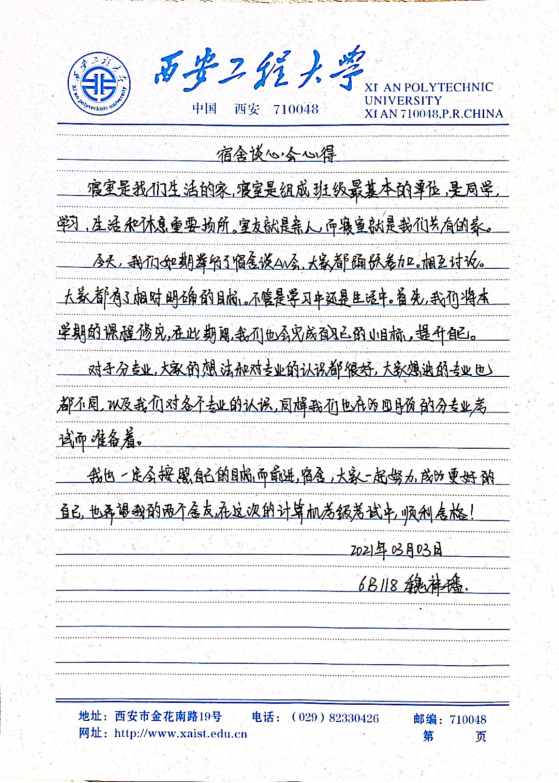 西安工程大学
XI AN POLYTECHNIC
UNIVERSITY
中国 西安 710048
XI AN 710048,P.R.CHINA
宿舍谈心会心得
寝室是我们生活的家,寝室是组成班级最基本的单位,是同学,
学习、生活和休息重要场所。室友就是亲人,而寝室就是我们共有的家。
今天,我们如期举行了宿舍谈心会,大家都踊跃参加。相互讨论。
大家都有了相对明确的目标。不管是学习中还是生活中。首先,我们将本
学期的课程修完,在此期间,我们也会完成自己的小目标,提升自己。
对于分专业,大家的想法和对专业的认识都很好,大家想选的专业也
都不同,以及我们对各个专业的认识,同样我们也在为四月份的分专业考
试而准备着。
我也一定会按照自己的目标而前进,宿舍,大家一起努力,成为更好的
自己,也希望我的两个舍友在这次的计算机考级考试中,顺利合格!
2021年03月03日
6B118 魏祥
地址:西安市金花南路19号 电话:(029)82330426 邮编:710048
网址:http://www.xaist.edu.cn 第 页